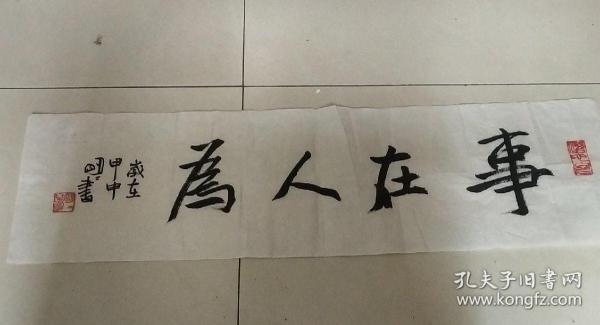 事在人為
歲在
甲中
書
孔夫子旧书网
www.kongfz.com